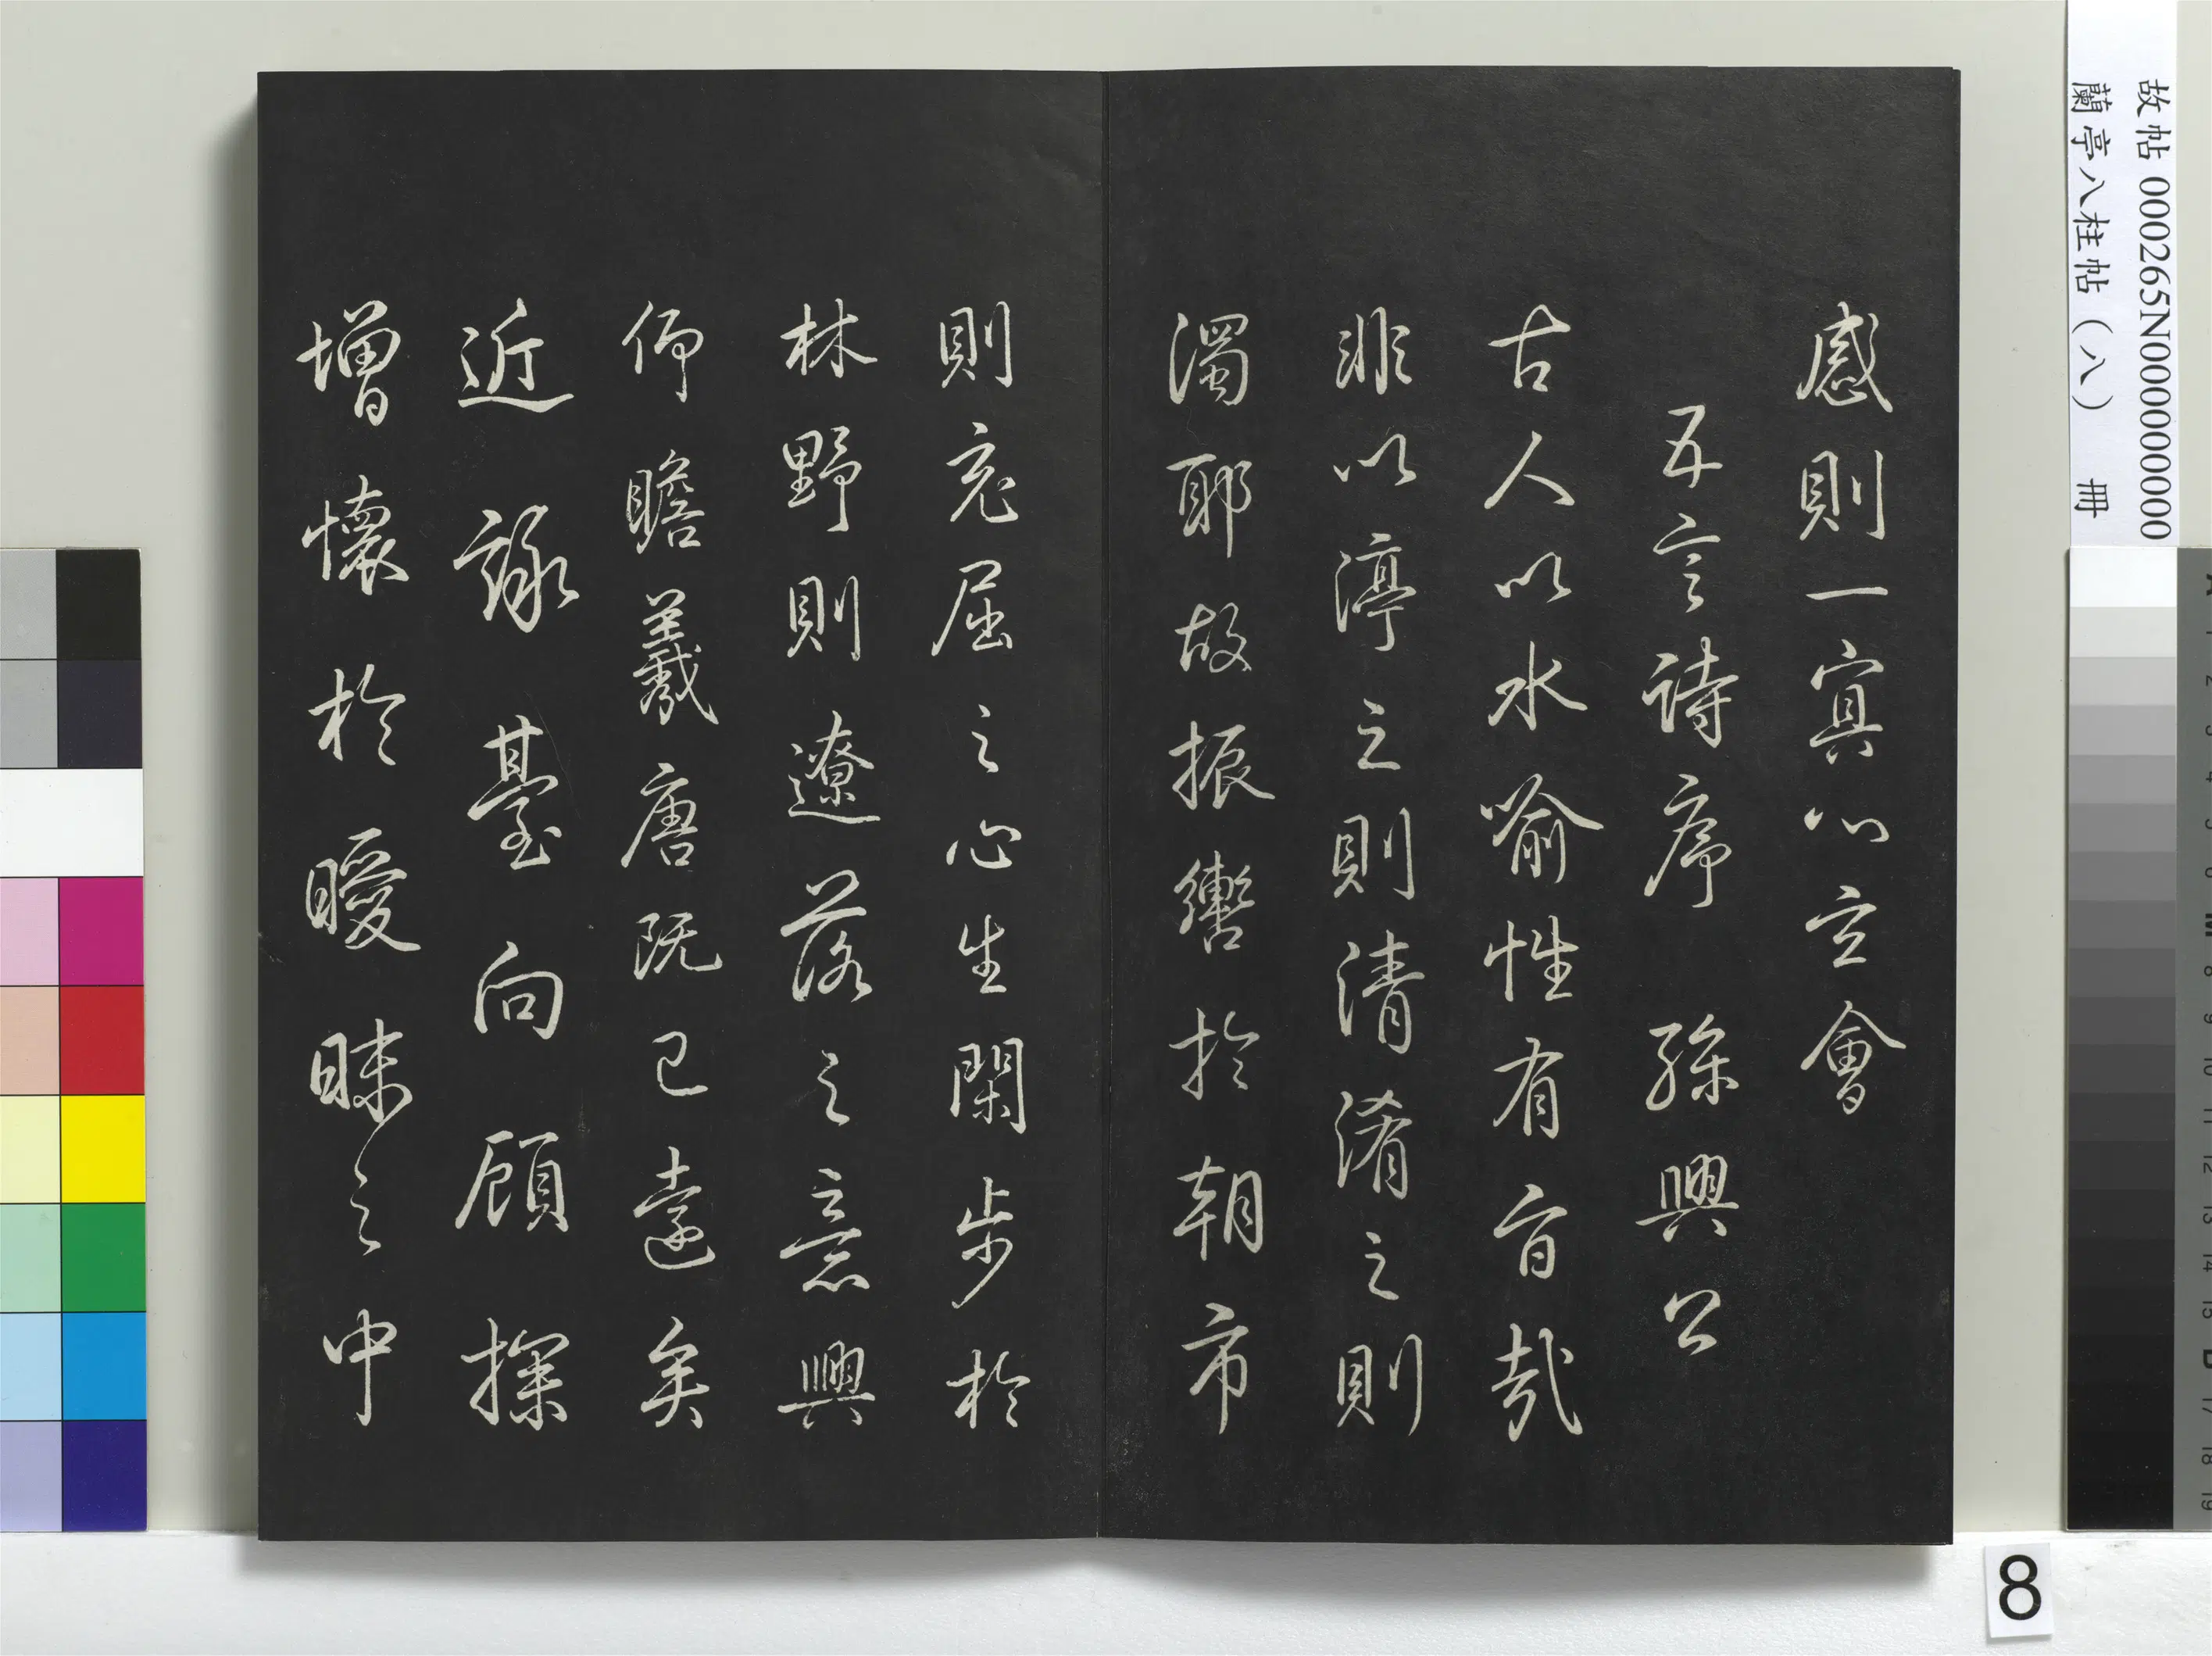 故帖 000265N000000000
蘭亭八柱帖（八） 冊
感則一冥心玄會
五言詩序 孫興公
古人以水喻性有旨哉
非以渟之則清淆之則
濁耶故振轡於朝市
則充屈之心生閑步於
林野則遼落之意興
仰瞻羲唐既已遠矣
近詠臺向顧探
增懷於曖昧之中
8